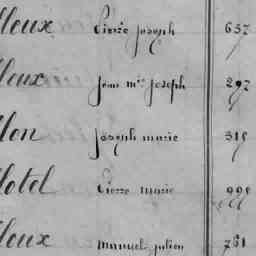 lloux Pierre Joseph 637
lleux Jean Mie Joseph 297
llon Joseph marie 319
Hotel Pierre marie 998
lloux manuel julien 761